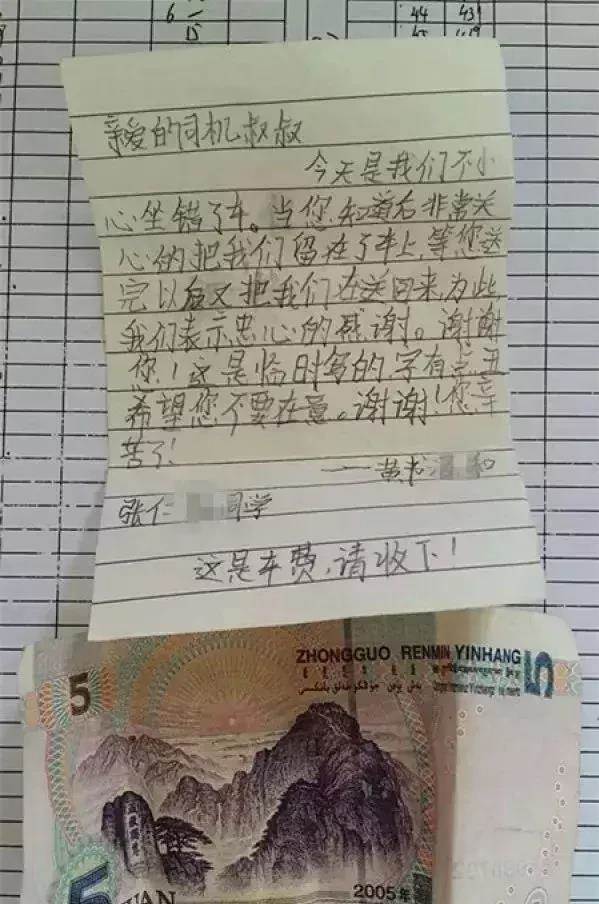 6
15
44
431
亲爱的司机叔叔
今天是我们不小
心坐错了车。当您知道后非常关
心的把我们留在了车上,等您送
完以后又把我们在送回来,为此
我们表示忠心的感谢。谢谢
您!这是临时写的,字有点丑
希望您不要在意。谢谢!您辛
苦了!
——黄书 和
张仁 同学
这是车费,请收下!
ZHONGGUO RENMIN YINHANG
5
5
5
YUAN
2005年